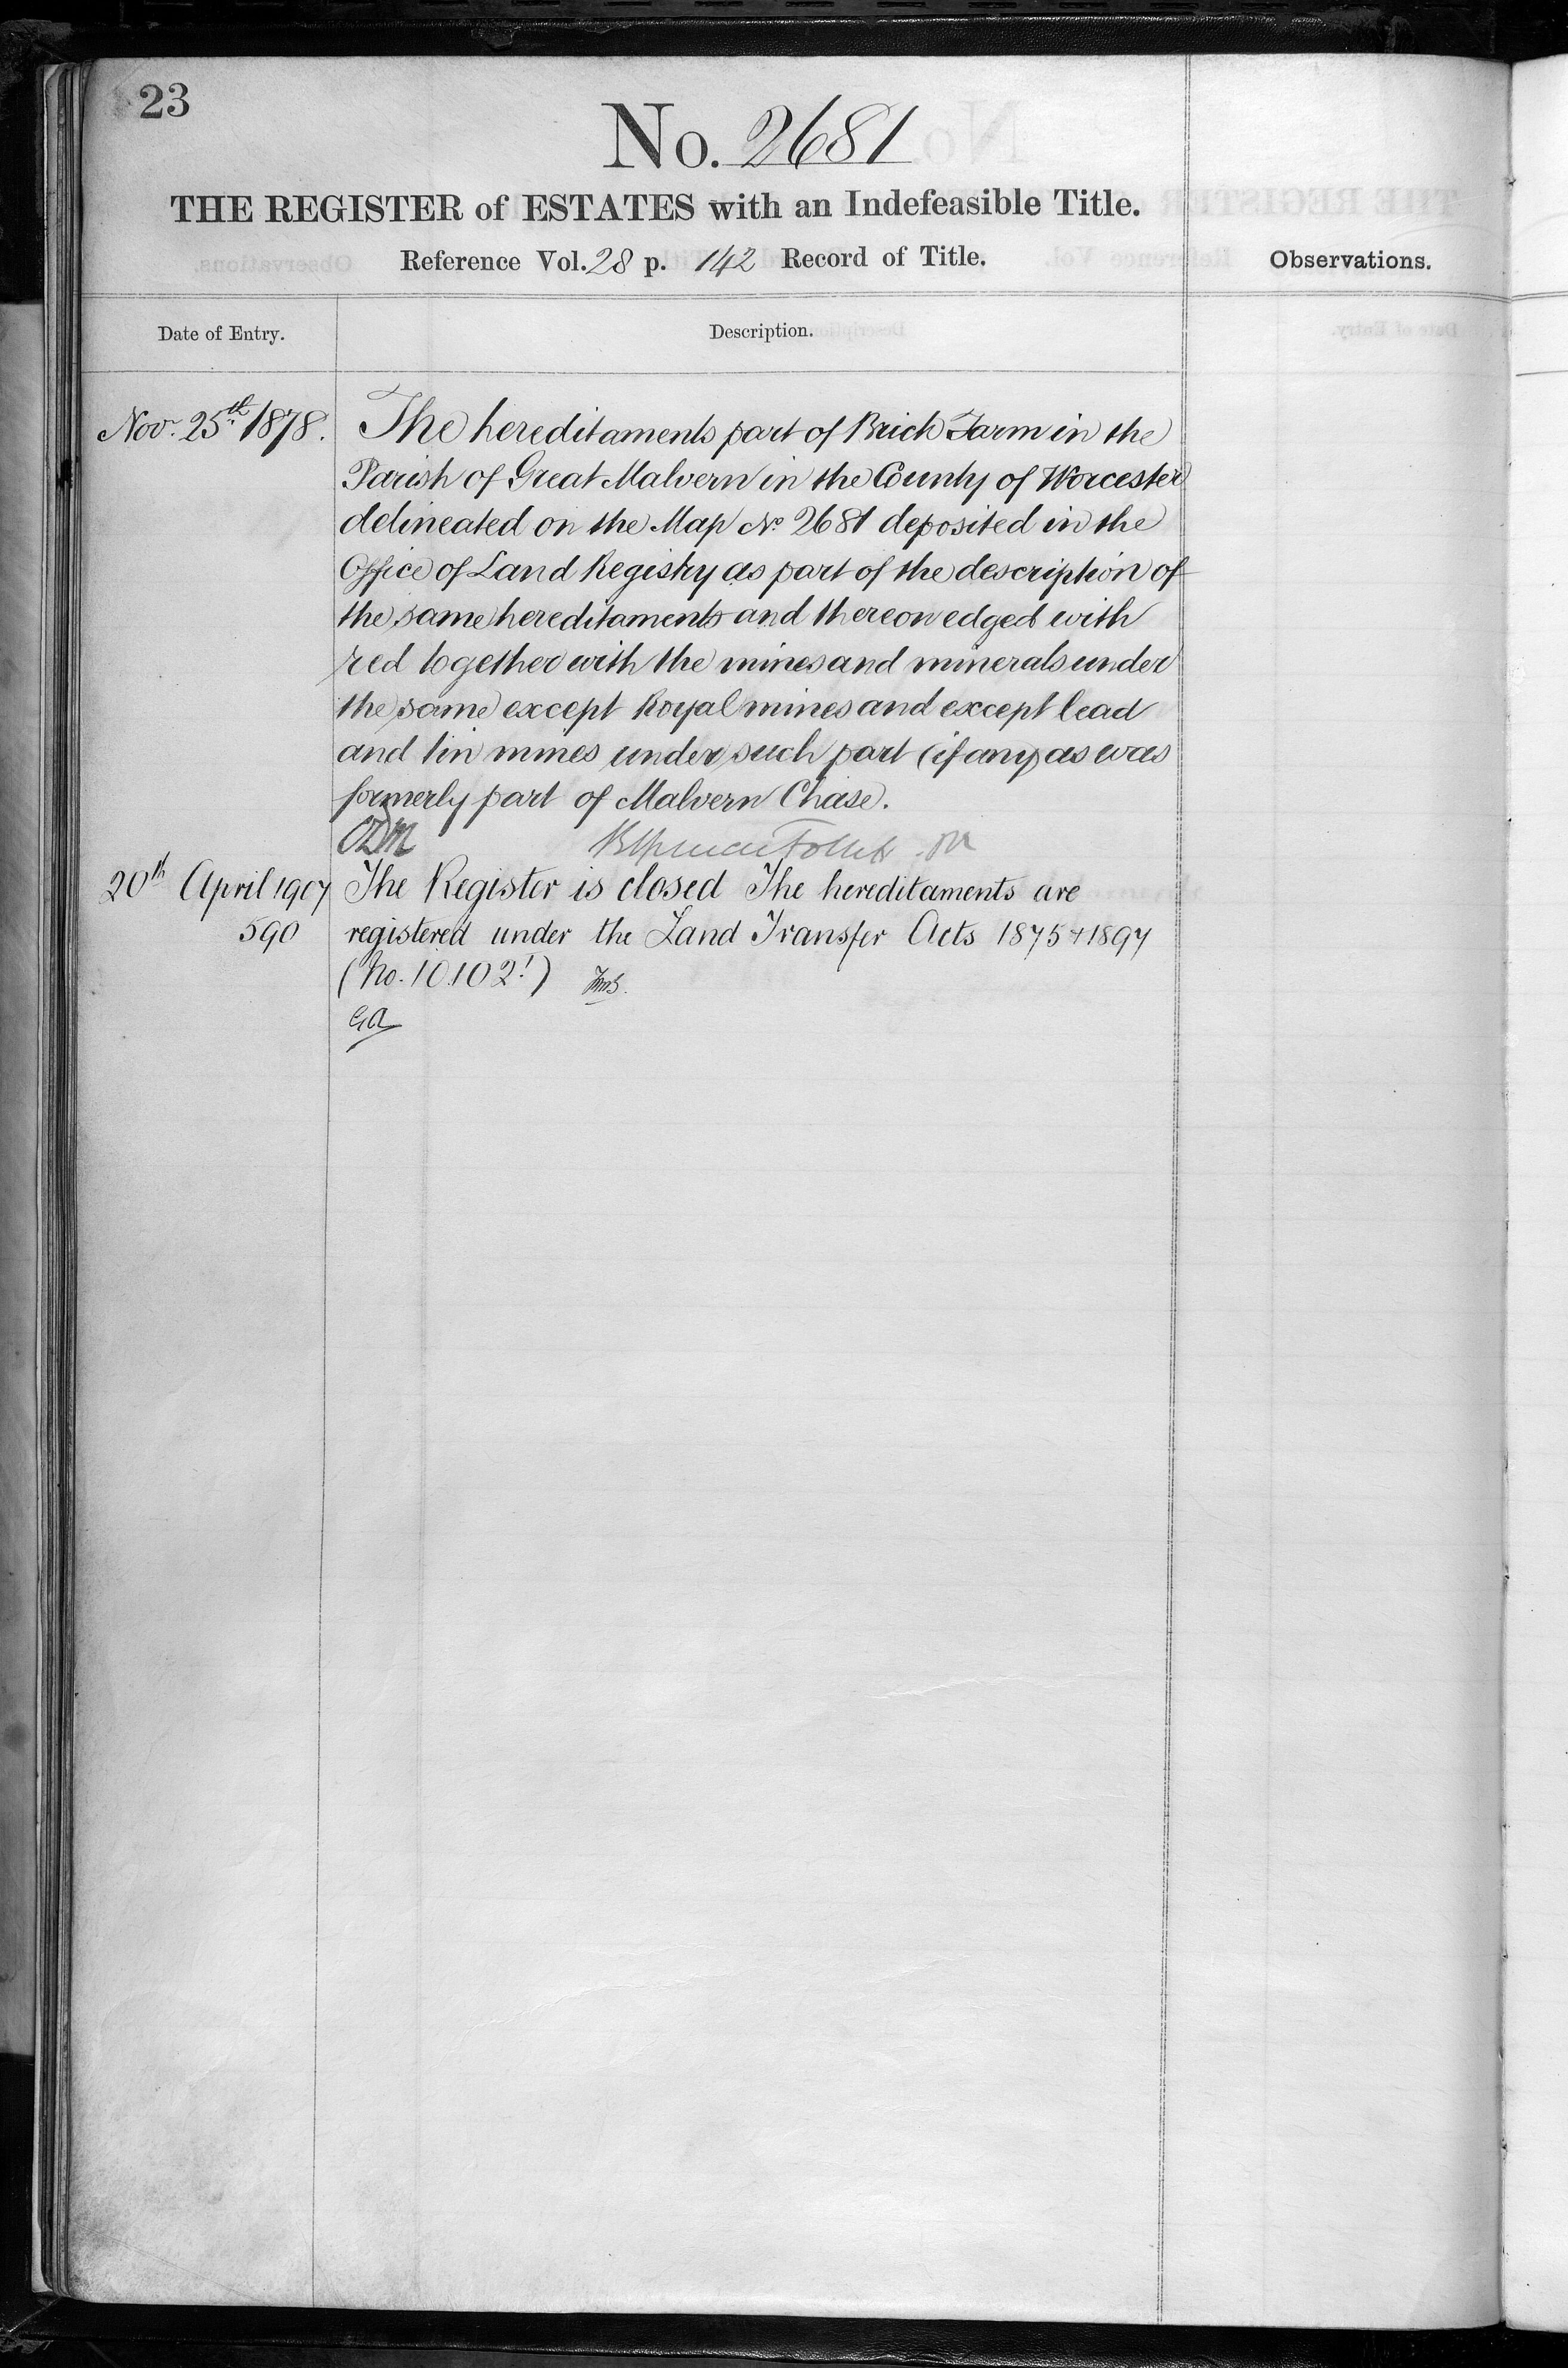 23
No. 2681
THE REGISTER of ESTATES with an Indefeasible Title.
Reference Vol. 28 p. 142 Record of Title.
Observations.
Date of Entry.
Description.
Nov. 25th 1878.
The hereditaments part of Brick Farm in the
Parish of Great Malvern in the County of Worcester
delineated on the Map No 2681 deposited in the
Office of Land Registry as part of the description of
the same hereditaments and thereon edged with
red together with the mines and minerals under
the same except Royal mines and except lead
and tin mines under such part (if any) as was
formerly part of Malvern Chase.
Follett
20th April 1907
590
The Register is closed The hereditaments are
registered under the Land Transfer Acts 1875 & 1897
(No. 10102!)